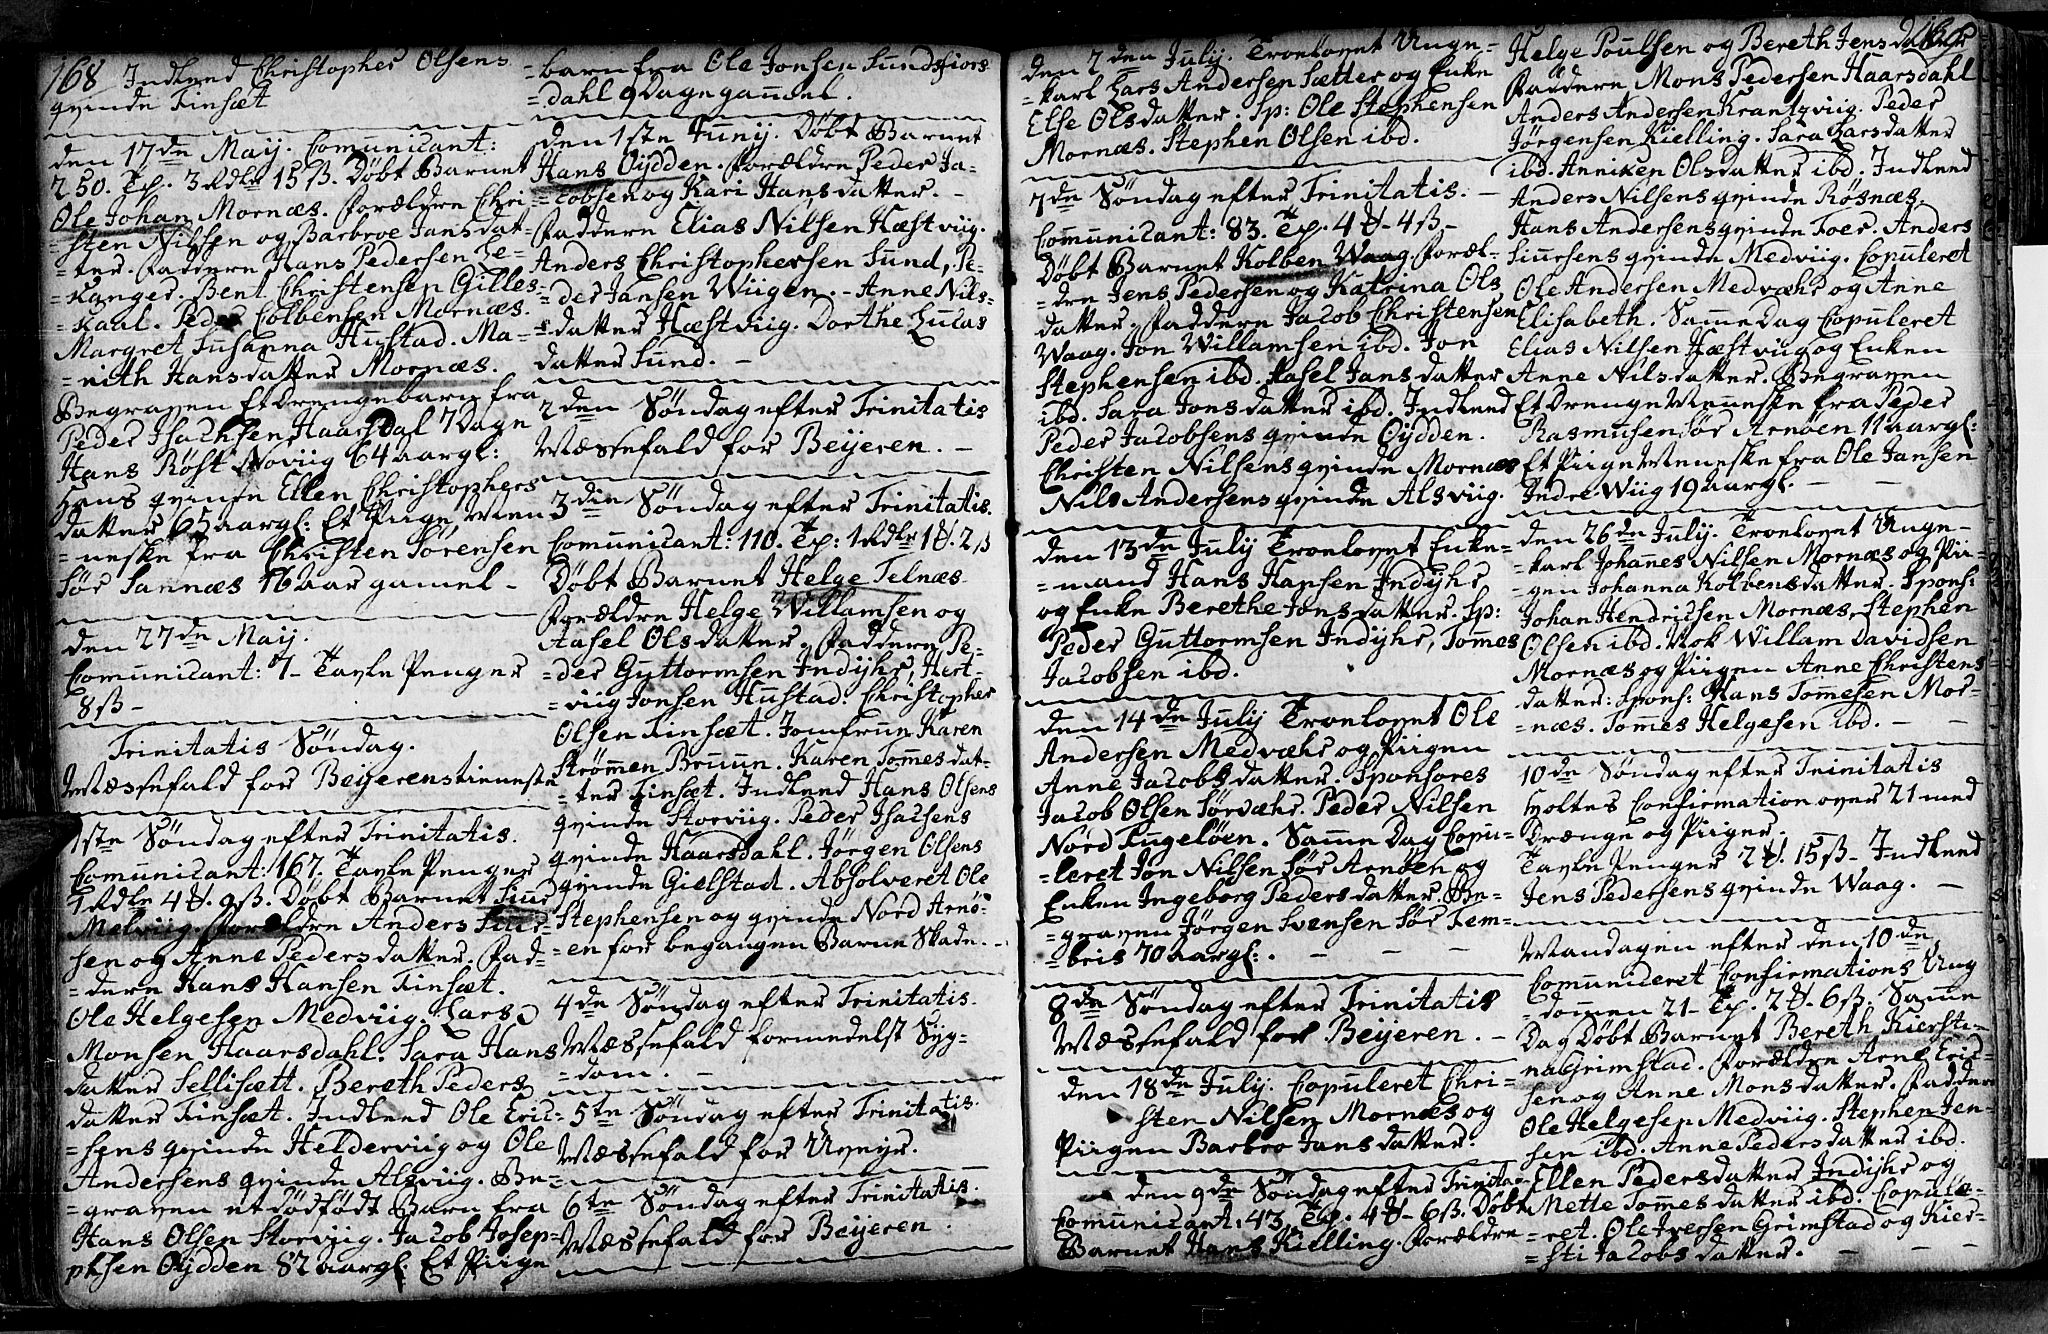 168 Indleed Christopher Olsens
qvinde Finsæt
den 17de Maij. Comunicant:
250. Tp. 3 Rdlr 15 ß. Døbt Barnet
Ole Johan Mornæs. Forældre Chri-
=sten Nilsen og Barbroe Jansdat-
=ter. Faddere Hans Pedersen Le-
=kanger. Bent Christensen Gilles-
=kaal. Peder Colbensen Mornæs.
Margret Susanna Hustad. Ma-
=rith Hansdatter Mornæs.
Begraven Et Drengebarn fra
Peder Isachsen Haarsdal 7 Dage
Hans Røst Noviig 64 aar gl:
Hans qvinde Ellen Christophers
datter 65 aar gl: Et Piige Men
=neske fra Christen Sørensen
Sør Sannæs 16 Aar gamel -
den 27de Maij.
Comunicant: 7 - Tavle Penger
8 ß -
Trinitatis Søndag.
Messefald for Beijerens tienneste
1ste Søndag efter Trinitatis.
Comunicant: 167. Tavle Penger
1 Rdlr 4 ₰. 9 ß. Døbt Barnet Siurd
Melviig. Forældre Anders Siur-
sen og Anne Pedersdatter. Fad-
=dere Hans Hansen Finsæt.
Ole Helgesen Medviig. Lars
Monsen Haarsdahl. Sara Hans
datter Sellisætt. Bereth Peders
datter Finsæt. Indleed Ole Eric-
=sens qvinde Heldervig og Ole
Andersens qvinde Alsviig. Be-
=graven et dødfødt Barn fra
Hans Olsen Storviig. Jacob Josep-
phsen Øydden 82 aar gl. Et Piige
=barn fra Ole Jonsen Sundsfiors
=dahl 9 Dage gammel.
den 1ste Junij. Døbt Barnet
Hans Øydden. Forældre Peder Ja-
=cobsen og Kari Hansdatter. -
Faddere Elias Nilsen Hæstviig.
Anders Christophersen Sund, Pe-
=der Jansen Wiigen. - Anne Nils-
=datter Hæstviig. Dorthe Lucas
datter Sund. -
2den Søndag efter Trinitatis
Messefald for Beijeren. -
3die Søndag efter Trinitatis.
Comunicant: 110. Tp: 1 Rdlr 1 ₰. 2 ß
Døbt Barnet Helge Telnæs.
Forældre Helge Willamsen og
Aasel Olsdatter. Faddere Pe-
=der Guttormsen Indijhr, Hert-
=viig Jonsen Hustad. Christopher
Olsen Finsæt. Jomfruu Karen
Strømen Bruun. Karen Tommesdat-
=ter Finsæt. Indleed Hans Olsens
qvinde Storviig. Peder Isacsens
qvinde Haarsdahl. Jørgen Olsens
qvinde Gielstad. Absolveret Ole
Stephensen og qvinde Nord Arnø-
=en for begangen Barne Skade. -
4de Søndag efter Trinitatis.
Messefald formedelst Syg-
=dom. -
5te Søndag efter Trinitatis.
Messefald for Uvejr.
6te Søndag efter Trinitatis.
Messefald for Beijeren.
den 2den Julij. Trolovet Unge-
=karl Lars Andersen Sætter og Enke
Else Olsdatter. Sp: Ole Stephensen
Mornæs. Stephen Olsen ibd.
7de Søndag efter Trinitatis. -
Comunicant: 83. Tp. 4 ₰ - 4 ß -
Døbt Barnet Kolben Waag. Foræl-
=dre Jens Pedersen og Katrina Ols
datter. Faddere Jacob Christensen
Waag. Jon Willamsen ibd. Jon
Stephensen ibd. Aasel Jansdatter
ibd. Sara Jonsdatter ibd. Indleed
Peder Jacobsens qvinde Øydden.
Christen Nilsens qvinde Mornæs
Nils Andersens qvinde Alsviig.
den 13de July Trolovet Enke-
=mand Hans Hansen Indijhr
og Enke Berethe Jonsdatter. Sp:
Peder Guttormsen Indijhr, Tommes
Jacobsen ibd.
den 14de July Trolovet Ole
Andersen Medvæhr og Piigen
Anne Jacobsdatter. Sponsores
Jacob Olsen Sørvæhr. Peder Nilsen
Nord Fugeløen. Samme Dag Copu-
=leret Jon Nilsen Sør Arnøen og
Enken Ingeborg Pedersdatter. Be-
=graven Jørgen Svensen Sør Fem-
=bris 70 Aar gl: . - -
8de Søndag efter Trinitatis
Messefald for Beijeren. -
den 18de July. Copuleret Chri-
sten Nilsen Mornæs og
Piigen Barbro Jansdatter.
den 9de Søndag efter Trinita-
Comunicant: 43. Tp. 4 ₰ - 6 ß. Døbt
Barnet Hans Kielling. Forældre
Helge Poulsen og Bereth Jensdatter
Faddere Mons Pedersen Haarsdahl
Anders Andersen Krantzviig. Peder
Jørgensen Kielling. Sara Larsdatter
ibd. Anniken Olsdatter ibd. Indleed
Anders Nilsens qvinde Røsnæs.
Hans Andersens qvinde Toer. Anders
Siursens qvinde Medviig. Copuleret
Ole Andersen Medvæhr og Anne
Elisabeth. Samme Dag Copuleret
Elias Nilsen Hæstviig og Enken
Anne Nilsdatter. Begraven
Et Drenge Menneske fra Peder
Rasmusen Sør Arnøen 11 aar gl:
Et Piige Menneske fra Ole Jansen
Indre Wiig 19 aar gl. - -
den 26de July. Trolovet Unge-
=karl Johannes Nilsen Mornæs og Pii-
=gen Johanna Kolbensdatter. Spons:
Johan Hendricsen Mornæs. Stephen
Olsen ibd. Nok Willam Davidsen
Mornæs og Piigen Anne Christens
datter: Spons: Hans Tomesen Mor-
=næs. Tommes Helgesen ibd. - -
10de Søndag efter Trinitatis
Holtes Confirmation over 21 med
Drænge og Piiger.
Tavle Penger 2 ₰. 15 ß - Indleed
Jens Pedersens qvinde Waag. -
Mandagen efter den 10de
Comuniceret Confirmations Ung
=dommen 21 - Tp. 2 ₰. 6 ß. Samme
Dag Døbt Barnet Bereth Kiersti-
na Grimstad. Forældre Arne Eric-
sen og Anne Monsdatter. Faddere
Ole Helgesen Medviig. Stephen Jen-
sen ibd. Anne Pedersdatter ibd.
Ellen Pedersdatter Indijhr og
Mette Tommesdatter ibd. Copule-
=ret. Ole Iversen Grimstad og Kier-
=sti Jacobsdatter. - - -